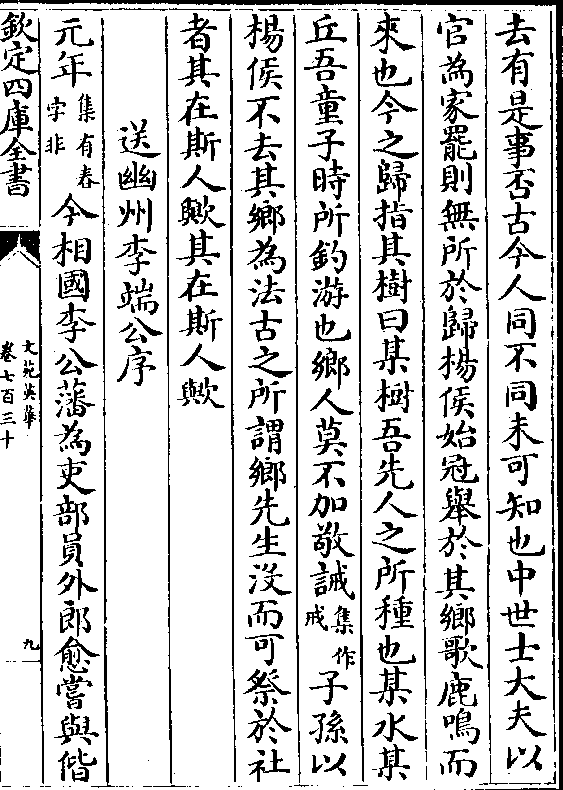 去有是事否古今人同不同未可知也中世士大夫以
官為家罷則無所於歸楊侯始冠舉於其鄉歌鹿鳴而
來也今之歸指其樹曰某樹吾先人之所種也某水某
丘吾童子時所釣游也鄉人莫不加敬誡集作戒子孫以
楊侯不去其鄉為法古之所謂鄉先生没而可祭於社
者其在斯人歟其在斯人歟
送幽州李端公序
元年集有春字非今相國李公藩為吏部員外郎愈嘗與偕
欽定四庫全書
文苑英華
卷七百三十
九